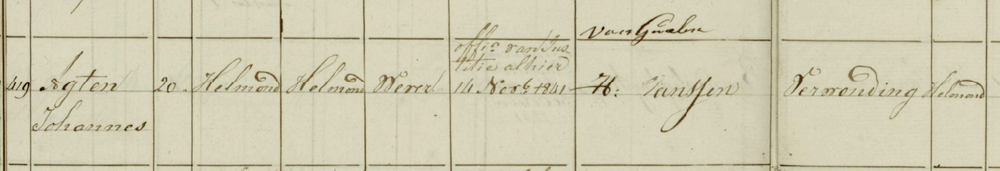 van Gualen
offic. van Jus
titie alhier
419 Agten 20 Helmond Helmond Wever 14 Novb 1841 H: Janssen Verwonding Helmond
Johannes